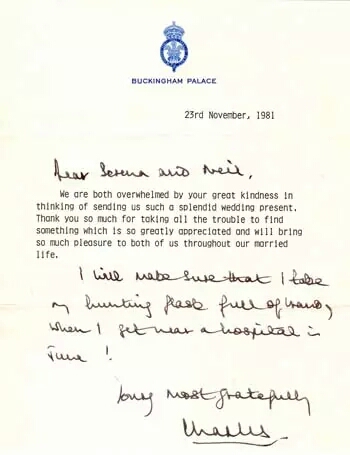 BUCKINGHAM PALACE
23rd November, 1981
Dear Serena and Neil,
We are both overwhelmed by your great kindness in
thinking of sending us such a splendid wedding present.
Thank you so much for taking all the trouble to find
something which is so greatly appreciated and will bring
so much pleasure to both of us throughout our married
life.
I will make sure that I take
my hunting flask full of
when I get near a hospital in
June !
Yours most gratefully
Charles.